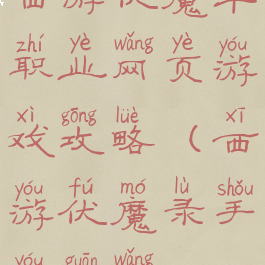 西游伏魔平
zhí yè wǎng yè yóu
职业网页游
xì gōng lüè xī
戏攻略(西
yóu fú mó lù shǒu
游伏魔录手
yóu guān wǎng